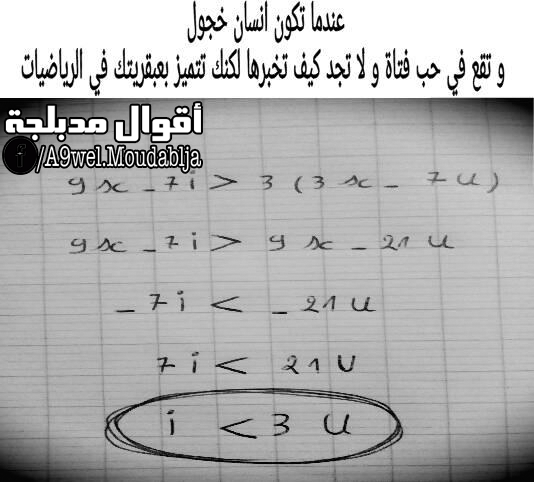 عندما تكون انسان خجول
و تقع في حب فتاة و لا تجد كيف تخبرها لكنك تتميز بعبقريتك في الرياضيات
أقوال مدبلجة
f/A9wel.Moudablja
9x - 7i > 3 (3x - 7u)
9x - 7i > 9x - 21u
-7i < -21u
7i < 21u
i <3 u